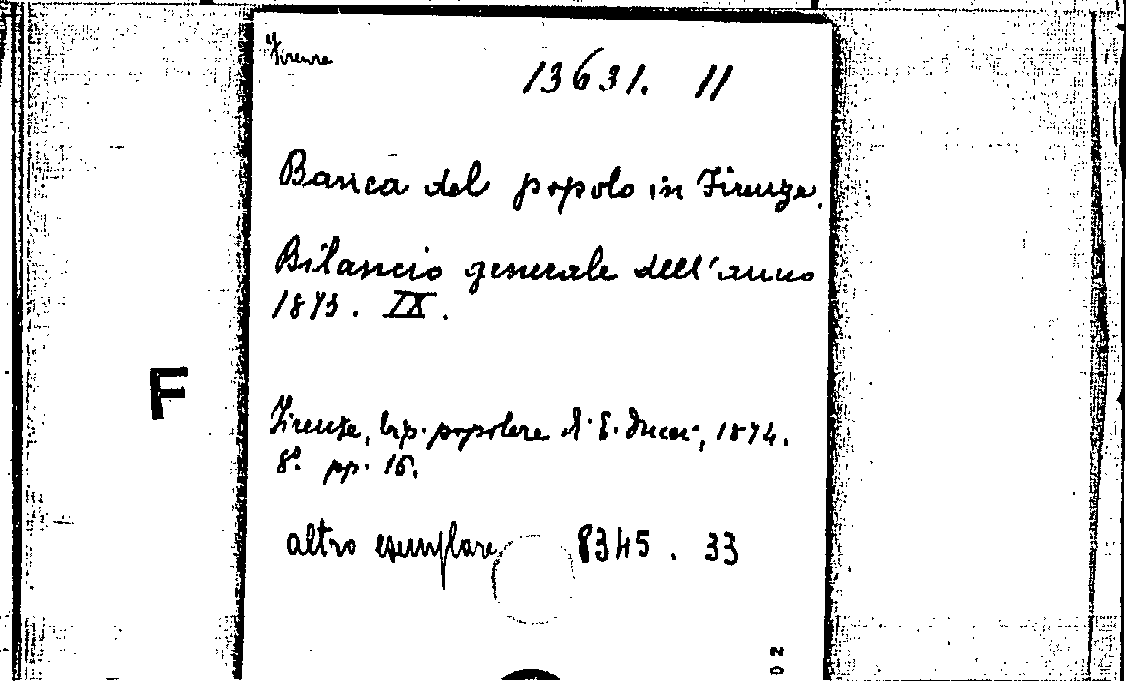 Firenze
13631. 11
Banca del popolo in Firenze.
Bilancio generale dell'anno
1873. IX.
F
Firenze, tip. popolare d. E. Ducci, 1874.
8º. pp. 16.
altro esemplare 8345. 33